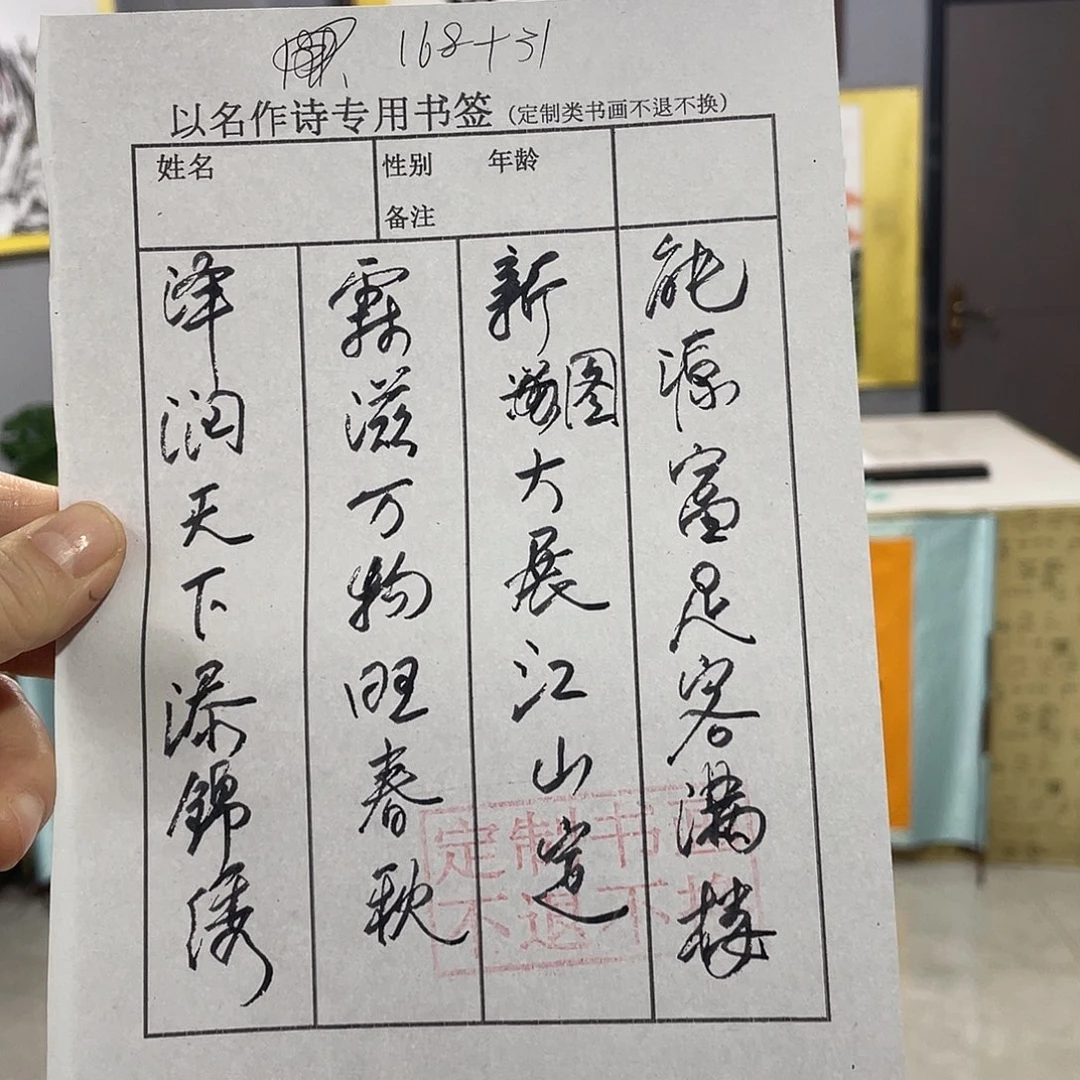 168+31
以名作诗专用书签(定制类书画不退不换)
姓名
性别 年龄
备注
泽润天下添锦绣
霖滋万物旺春秋
新图大展江山
能源富足客满楼
定制书画
不退不换